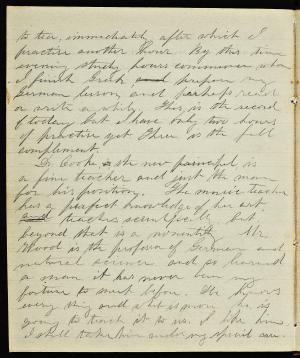 to tea, immediately after which I
practise another hour. By this time
evening study hours commence when
I finish Greek and prepare my
German lesson, and perhaps read
or write a while. This is the second
today but I have only two hours
of practise yet three is the full
compliment.
Dr. Cooke is the new principal is
a fine teacher and just the man
for his position. The music teacher
has a perfect knowledge of her art
and teaches scientifically but
beyond that is a nonentity. Mr
Wood is the professor of German and
natural science and so learned
a man it has never been my
fortune to meet before. He knows
every thing and what is more he is
going to teach it to us. I like him.
I shall take him under my special care